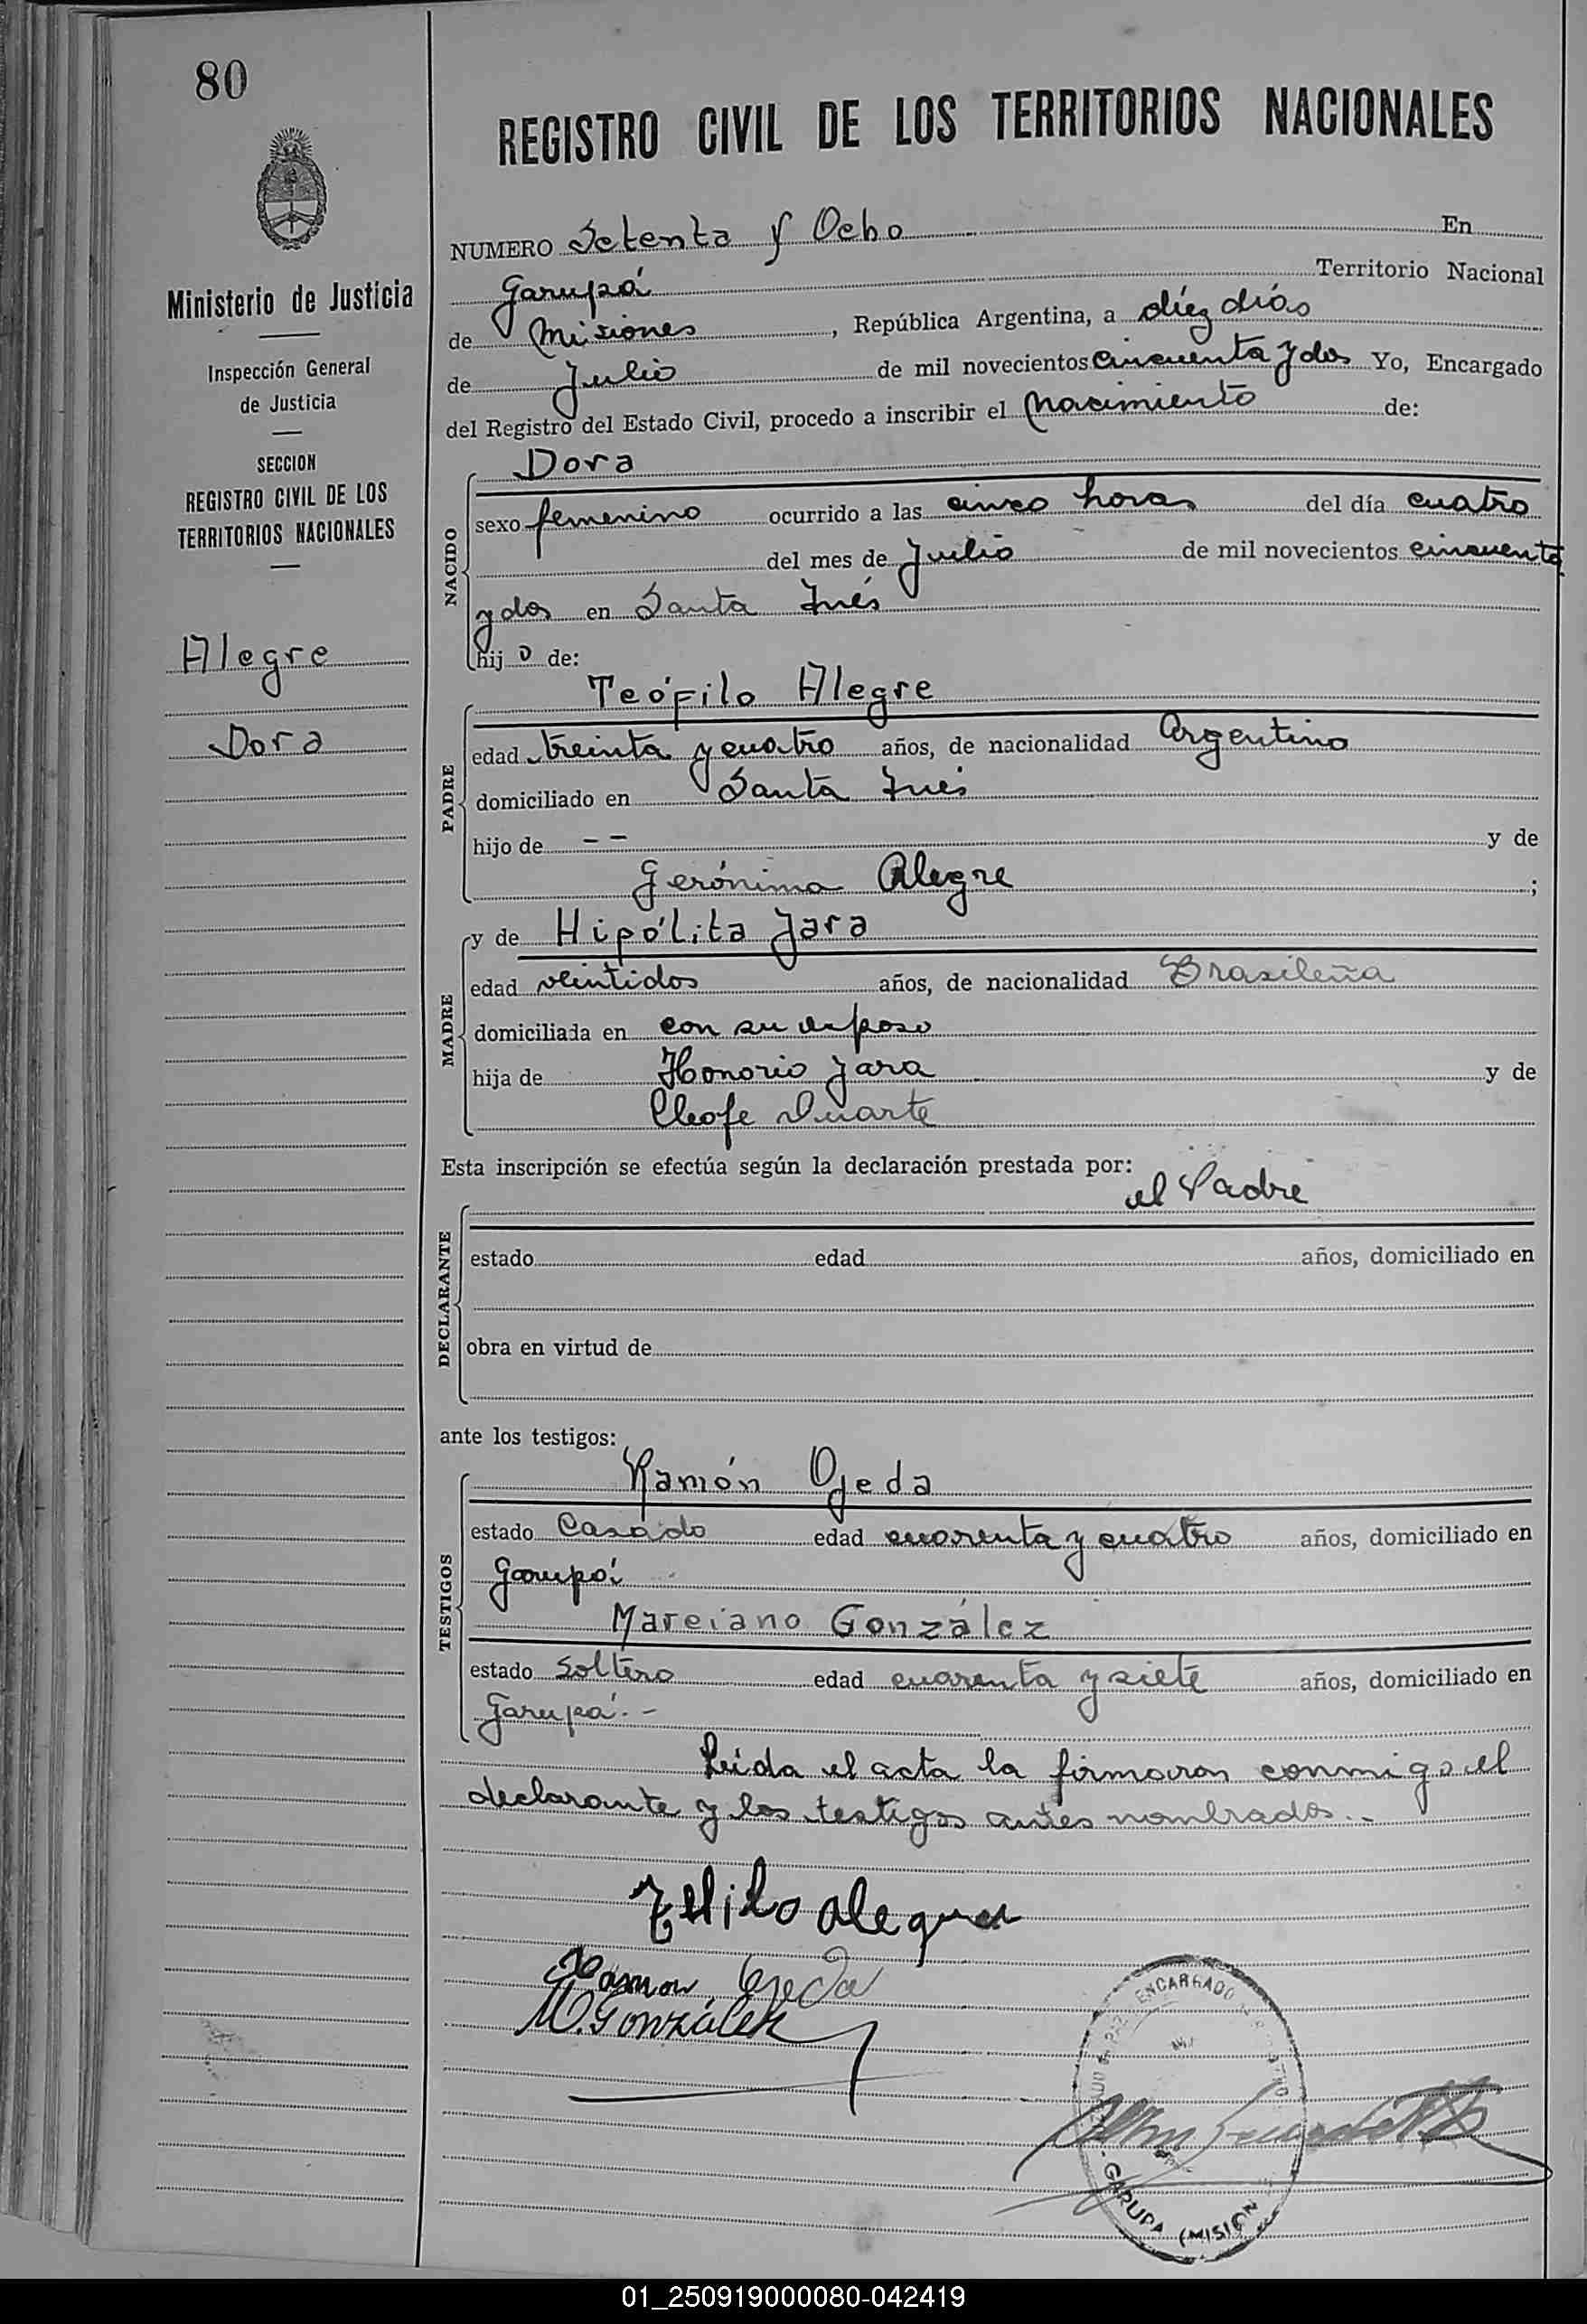 80
REGISTRO CIVIL DE LOS TERRITORIOS NACIONALES
Ministerio de Justicia
Inspección General
de Justicia
SECCION
REGISTRO CIVIL DE LOS
TERRITORIOS NACIONALES
Alegre
Dora
NUMERO Setenta y Ocho En
Garupá Territorio Nacional
de Misiones, República Argentina, a diez días
de Julio de mil novecientos cincuenta y dos Yo, Encargado
del Registro del Estado Civil, procedo a inscribir el nacimiento de:
NACIDO
Dora
sexo femenino ocurrido a las cinco horas del día cuatro
del mes de Julio de mil novecientos cincuenta
y dos en Santa Inés
hij o de:
PADRE
Teófilo Alegre
edad treinta y cuatro años, de nacionalidad Argentino
domiciliado en Santa Inés
hijo de -- y de
Gerónima Alegre ;
MADRE
y de Hipólita Jara
edad veintidos años, de nacionalidad Brasileña
domiciliada en con su esposo
hija de Honorio Jara y de
Cleofe Duarte
Esta inscripción se efectúa según la declaración prestada por:
el Padre
DECLARANTE
estado edad años, domiciliado en
obra en virtud de
ante los testigos:
TESTIGOS
Ramón Ojeda
estado Casado edad cuarenta y cuatro años, domiciliado en
Garupá
Marciano González
estado Soltero edad cuarenta y siete años, domiciliado en
Garupá.-
Leida el acta la firmaron conmigo el
declarante y los testigos antes nombrados.-
alegre
Ramon Ojeda
M. González
ENCARGADO
GARUPA (MISION
01_250919000080-042419